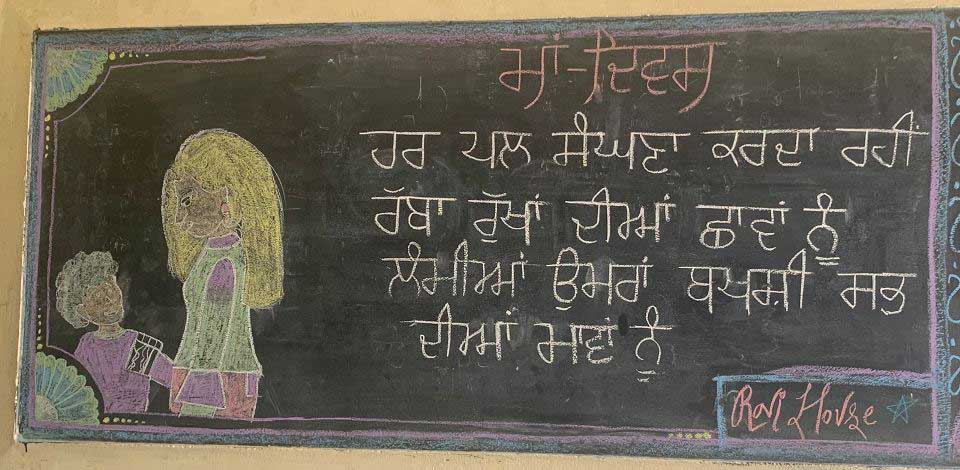 ਮਾਂ-ਦਿਵਸ
ਹਰ ਪਲ ਸੰਘਣਾ ਕਰਦਾ ਰਹੀਂ
ਰੱਬਾ ਰੁੱਖਾਂ ਦੀਆਂ ਛਾਵਾਂ ਨੂੰ
ਲੰਮੀਆਂ ਉਮਰਾਂ ਬਖਸ਼ੀ ਸਭ
ਦੀਆਂ ਮਾਵਾਂ ਨੂੰ
Ravi House